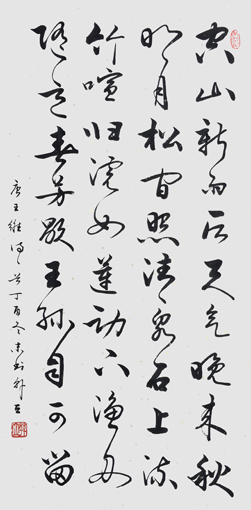 空山新雨后天气晚来秋
明月松间照清泉石上流
竹喧归浣女莲动下渔舟
随意春芳歇王孙自可留
唐王维诗一首丁酉冬末